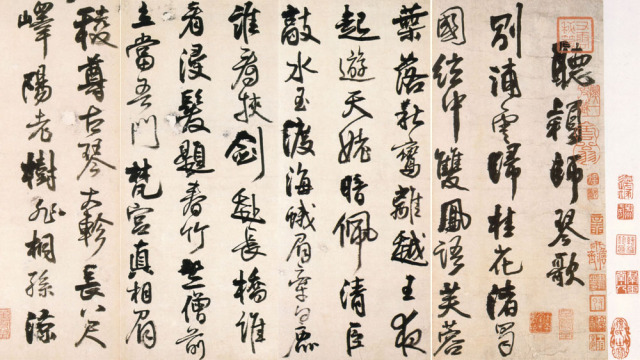 聽穎師琴歌
別浦雲歸桂花渚蜀
國絃中雙鳳語芙蓉
葉落秋鸞離越王夜
起遊天姥暗佩清臣
敲水玉渡海蛾眉牽白鹿
誰看挾劍赴長橋誰
看浸髮題春竹竺僧前
立當吾門梵宮真相眉
稜尊古琴大軫長八尺
嶧陽老樹非桐孫涼